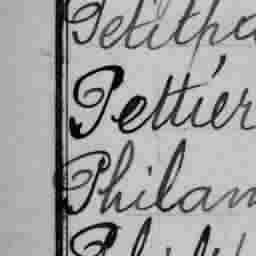 Petitpa
Pettier
Philam